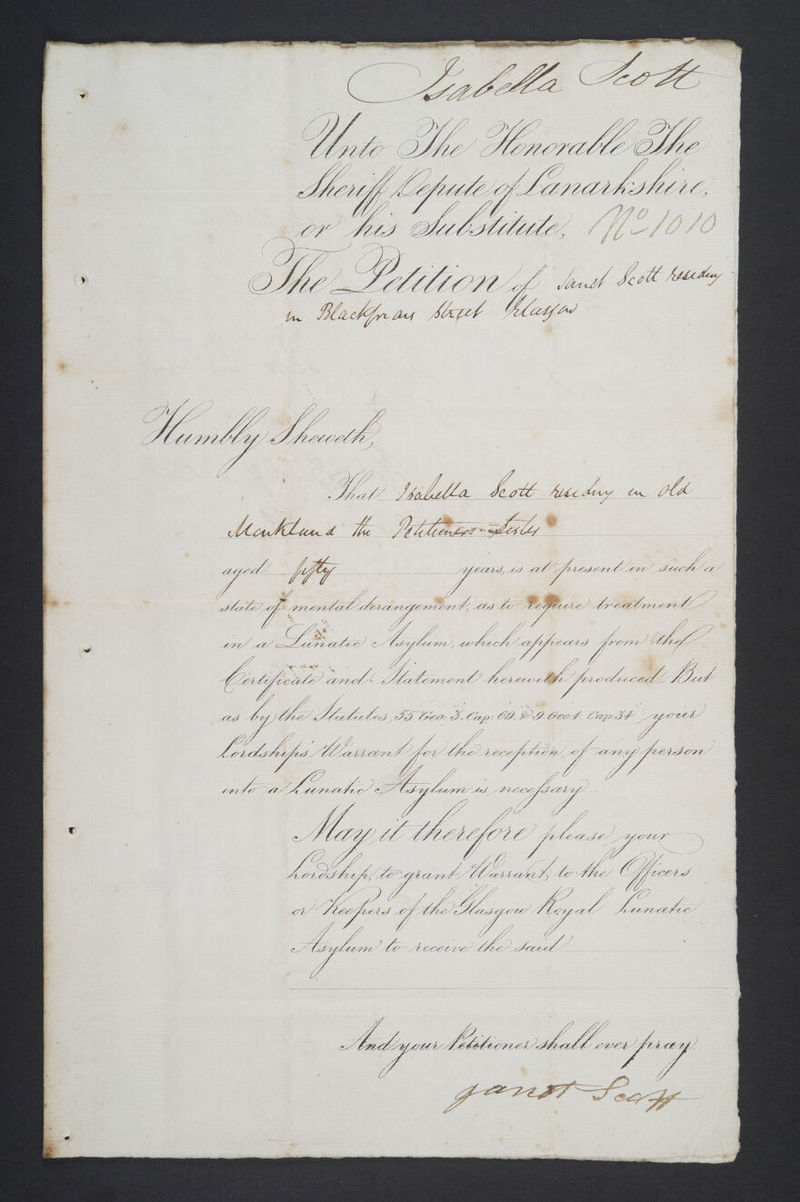 Isabella Scott
Unto The Honorable The
Sheriff Depute of Lanarkshire,
or his Substitute, No 1010
The Petition of Janet Scott residing
in Blackfriars Street Glasgow
Humbly Sheweth,
That Isabella Scott residing in Old
Monkland the Petitioners Sister
aged fifty years, is at present in such a
state of mental derangement, as to require treatment
in a Lunatic Asylum, which appears from the
Certificate and Statement herewith produced. But
as by the Statutes, 55 Geo. 3. Cap. 69. & 9 Geo 4. Cap 34 your
Lordship's Warrant for the reception of any person
into a Lunatic Asylum is necessary
May it therefore please your
Lordship, to grant Warrant, to the Officers
or Keepers of the Glasgow Royal Lunatic
Asylum to receive the said
And your Petitioner shall ever pray.
Janet Scott